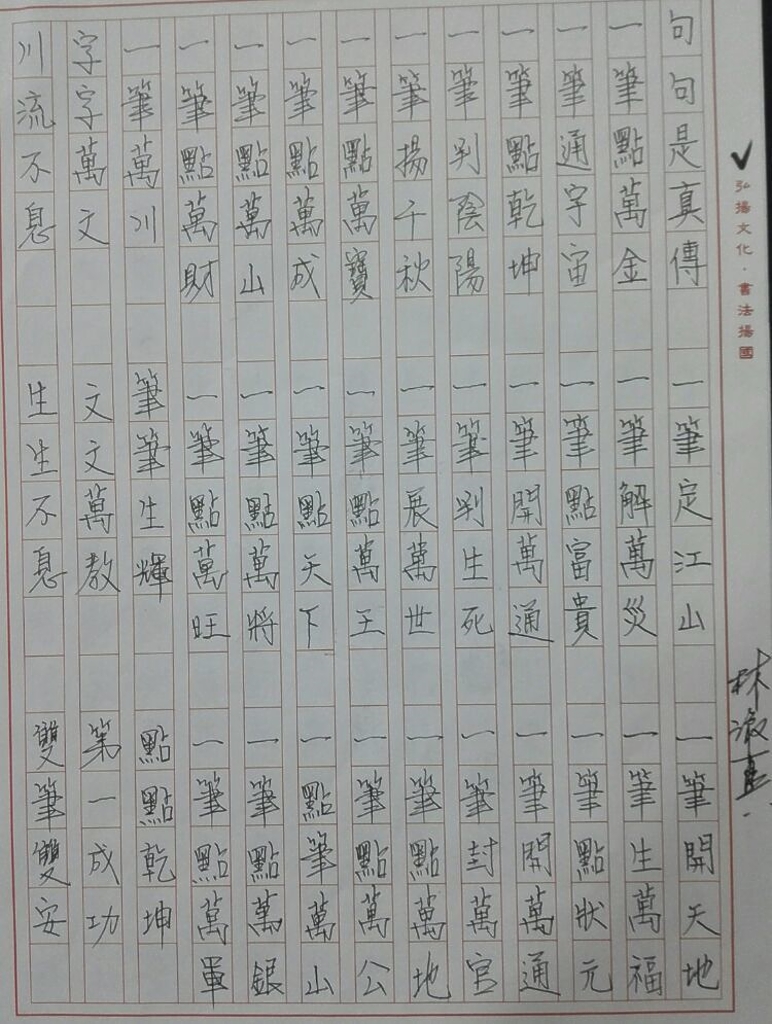 弘揚文化·書法揚國
句句是真傳 一筆定江山 一筆開天地
一筆點萬金 一筆解萬災 一筆生萬福
一筆通宇宙 一筆點富貴 一筆點狀元
一筆點乾坤 一筆開萬通 一筆開萬通
一筆判陰陽 一筆判生死 一筆封萬官
一筆揚千秋 一筆展萬世 一筆點萬地
一筆點萬寶 一筆點萬王 一筆點萬公
一筆點萬成 一筆點天下 一點筆萬山
一筆點萬山 一筆點萬將 一筆點萬銀
一筆點萬財 一筆點萬旺 一筆點萬軍
一筆萬川 筆筆生輝 點點乾坤
字字萬文 文文萬教 第一成功
川流不息 生生不息 雙筆雙安
林